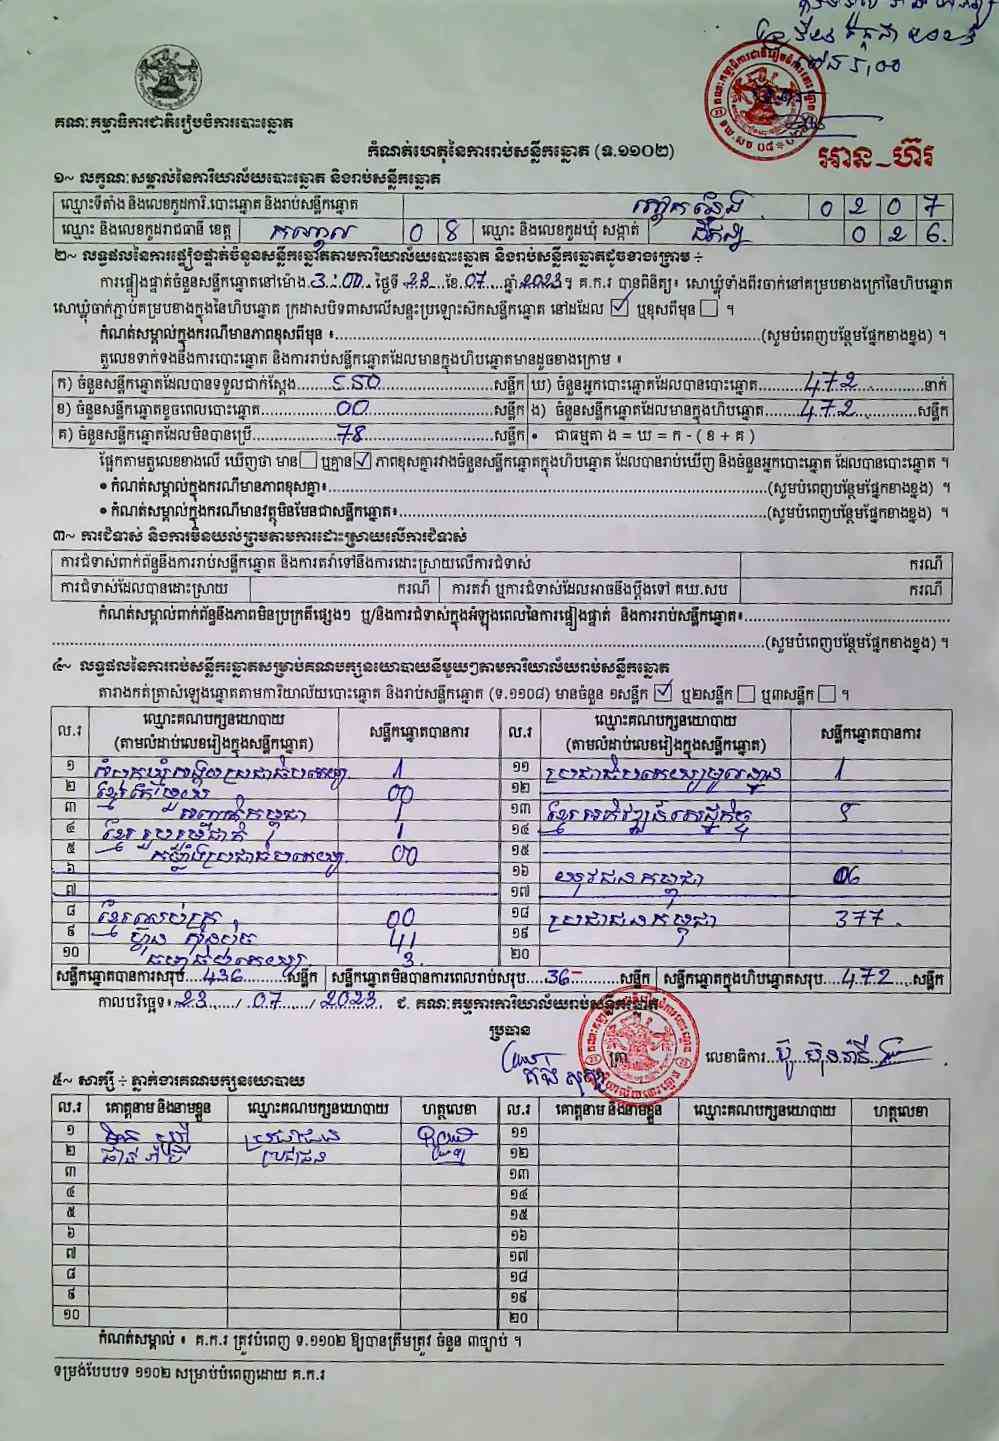 គណៈកម្មាធិការជាតិរៀបចំការបោះឆ្នោត
កំណត់ហេតុនៃការរាប់សន្លឹកឆ្នោត (ទ.១១០២)
អាន-ហ៊រ
១~ លក្ខណៈសម្គាល់នៃការិយាល័យបោះឆ្នោត និងរាប់សន្លឹកឆ្នោត
ឈ្មោះទីតាំង និងលេខកូដការិ.បោះឆ្នោត និងរាប់សន្លឹកឆ្នោត 0 2 0 7
ឈ្មោះ និងលេខកូដរាជធានី ខេត្ត កណ្តាល 0 8 ឈ្មោះ និងលេខកូដឃុំ សង្កាត់ 0 2 6
២~ លទ្ធផលនៃការផ្ទៀងផ្ទាត់ចំនួនសន្លឹកឆ្នោតតាមការិយាល័យបោះឆ្នោត និងរាប់សន្លឹកឆ្នោតដូចខាងក្រោម ៖
ការផ្ទៀងផ្ទាត់ចំនួនសន្លឹកឆ្នោតនៅម៉ោង 3:00 ថ្ងៃទី 23 ខែ 07 ឆ្នាំ 2023 ។ គ.ក.រ បានពិនិត្យ៖ សោឃ្លុំទាំងពីរចាក់នៅគម្របខាងក្រៅនៃហិបឆ្នោត
សោឃ្លុំចាក់ភ្ជាប់គម្របខាងក្នុងនៃហិបឆ្នោត ក្រដាសបិទពាសលើសន្ទះប្រឡោះស៊កសន្លឹកឆ្នោត នៅដដែល ☑ ឬខុសពីមុន ☐ ។
កំណត់សម្គាល់ក្នុងករណីមានភាពខុសពីមុន ៖ (សូមបំពេញបន្ថែមផ្នែកខាងខ្នង) ។
តួលេខទាក់ទងនឹងការបោះឆ្នោត និងការរាប់សន្លឹកឆ្នោតដែលមានក្នុងហិបឆ្នោតមានដូចខាងក្រោម ៖
ក) ចំនួនសន្លឹកឆ្នោតដែលបានទទួលជាក់ស្តែង ៥50 សន្លឹក ឃ) ចំនួនអ្នកបោះឆ្នោតដែលបានបោះឆ្នោត 472 នាក់
ខ) ចំនួនសន្លឹកឆ្នោតខូចពេលបោះឆ្នោត 00 សន្លឹក ង) ចំនួនសន្លឹកឆ្នោតដែលមានក្នុងហិបឆ្នោត 472 សន្លឹក
គ) ចំនួនសន្លឹកឆ្នោតដែលមិនបានប្រើ 78 សន្លឹក • ជាធម្មតា ង = ឃ = ក - ( ខ + គ )
ផ្អែកតាមតួលេខខាងលើ ឃើញថា មាន ☐ ឬគ្មាន ☑ ភាពខុសគ្នារវាងចំនួនសន្លឹកឆ្នោតក្នុងហិបឆ្នោត ដែលបានរាប់ឃើញ និងចំនួនអ្នកបោះឆ្នោត ដែលបានបោះឆ្នោត ។
• កំណត់សម្គាល់ក្នុងករណីមានភាពខុសគ្នា៖ (សូមបំពេញបន្ថែមផ្នែកខាងខ្នង) ។
• កំណត់សម្គាល់ក្នុងករណីមានវត្ថុមិនមែនជាសន្លឹកឆ្នោត៖ (សូមបំពេញបន្ថែមផ្នែកខាងខ្នង) ។
៣~ ការជំទាស់ និងការមិនយល់ព្រមតាមការដោះស្រាយលើការជំទាស់
ការជំទាស់ពាក់ព័ន្ធនឹងការរាប់សន្លឹកឆ្នោត និងការតវ៉ាទៅនឹងការដោះស្រាយលើការជំទាស់ ករណី
ការជំទាស់ដែលបានដោះស្រាយ ករណី ការតវ៉ា ឬការជំទាស់ដែលអាចនឹងប្តឹងទៅ គឃ.សប ករណី
កំណត់សម្គាល់ពាក់ព័ន្ធនឹងភាពមិនប្រក្រតីផ្សេងៗ ឬ/និងការជំទាស់ក្នុងអំឡុងពេលនៃការផ្ទៀងផ្ទាត់ និងការរាប់សន្លឹកឆ្នោត៖
(សូមបំពេញបន្ថែមផ្នែកខាងខ្នង) ។
៤~ លទ្ធផលនៃការរាប់សន្លឹកឆ្នោតសម្រាប់គណបក្សនយោបាយនីមួយៗតាមការិយាល័យរាប់សន្លឹកឆ្នោត
តារាងកត់ត្រាសំឡេងឆ្នោតតាមការិយាល័យបោះឆ្នោត និងរាប់សន្លឹកឆ្នោត (ទ.១១០៨) មានចំនួន ១សន្លឹក ☑ ឬ២សន្លឹក ☐ ឬ៣សន្លឹក ☐ ។
ល.រ ឈ្មោះគណបក្សនយោបាយ (តាមលំដាប់លេខរៀងក្នុងសន្លឹកឆ្នោត) សន្លឹកឆ្នោតបានការ ល.រ ឈ្មោះគណបក្សនយោបាយ (តាមលំដាប់លេខរៀងក្នុងសន្លឹកឆ្នោត) សន្លឹកឆ្នោតបានការ
១ សំបុកឃ្មុំសង្គមប្រជាធិបតេយ្យ 1 ១១ 1
២ ខ្មែរ 00 ១២
៣ កម្ពុជា 1 ១៣ ខ្មែរអភិវឌ្ឍន៍សេដ្ឋកិច្ច ៩
៤ ខ្មែររួបរួមជាតិ 1 ១៤
៥ កម្លាំងប្រជាធិបតេយ្យ 00 ១៥
៦ ១៦ យុវជនកម្ពុជា 06
៧ ១៧
៨ ខ្មែរ 00 ១៨ ប្រជាជនកម្ពុជា 377
៩ ហ្វ៊ុនស៊ិនប៉ិច 41 ១៩
១០ 2 ២០
សន្លឹកឆ្នោតបានការសរុប 436 សន្លឹក សន្លឹកឆ្នោតមិនបានការពេលរាប់សរុប 36 សន្លឹក សន្លឹកឆ្នោតក្នុងហិបឆ្នោតសរុប 472 សន្លឹក
កាលបរិច្ឆេទ៖ 23 / 07 / 2023 ជ. គណៈកម្មការការិយាល័យរាប់សន្លឹកឆ្នោត
ប្រធាន
ត្រា លេខាធិការ
៥~ សាក្សី ៖ ភ្នាក់ងារគណបក្សនយោបាយ
ល.រ គោត្តនាម និងនាមខ្លួន ឈ្មោះគណបក្សនយោបាយ ហត្ថលេខា ល.រ គោត្តនាម និងនាមខ្លួន ឈ្មោះគណបក្សនយោបាយ ហត្ថលេខា
១ ប្រជាជន ១១
២ ប្រជាជន ១២
៣ ១៣
៤ ១៤
៥ ១៥
៦ ១៦
៧ ១៧
៨ ១៨
៩ ១៩
១០ ២០
កំណត់សម្គាល់ ៖ គ.ក.រ ត្រូវបំពេញ ទ.១១០២ ឱ្យបានត្រឹមត្រូវ ចំនួន ៣ច្បាប់ ។
ទម្រង់បែបបទ ១១០២ សម្រាប់បំពេញដោយ គ.ក.រ